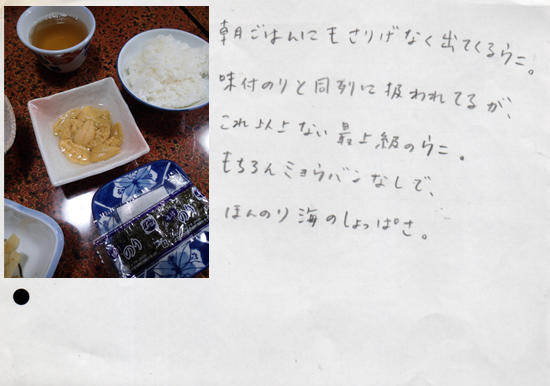 朝ごはんにもさりげなく出てくるウニ。
味付のりと同列に扱われてるが、
これ以上ない最上級のウニ。
もちろんミョウバンなしで、
ほんのり海のしょっぱさ。
のり